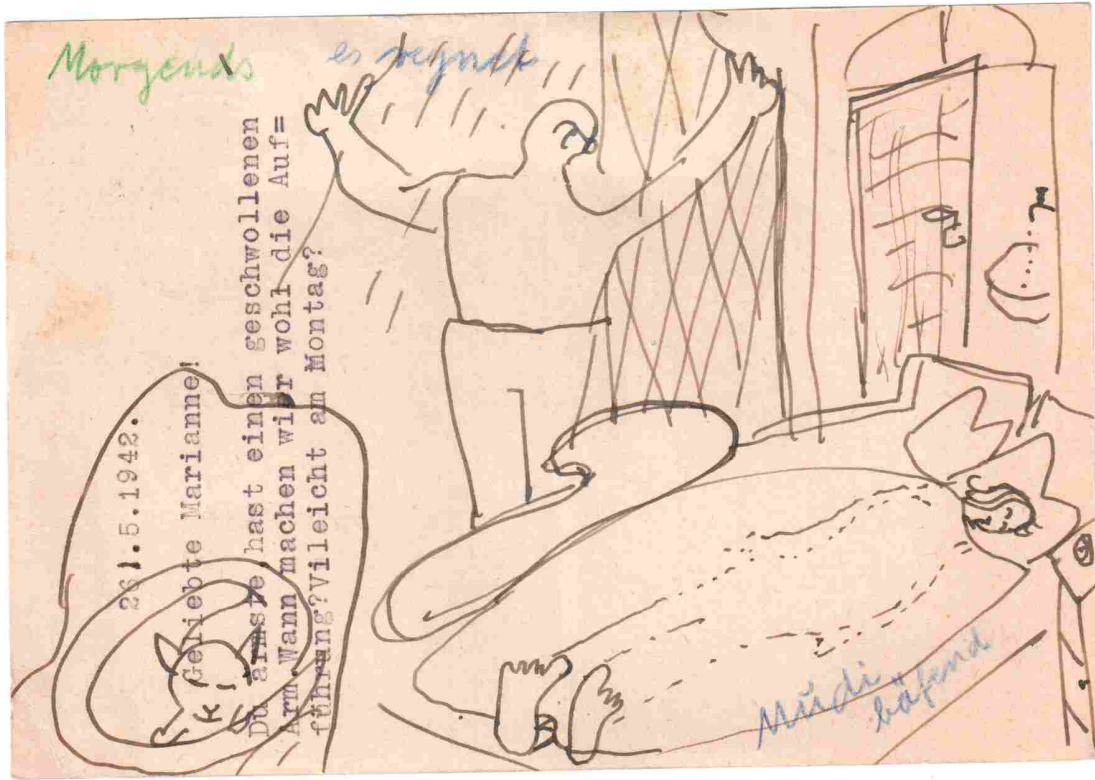 Morgends es regnet
261.5.1942.
Geliebte Marianne!
Du ärmste,hast einen geschwollenen
Arm.Wann machen wier wohl die Auf=
führung?Vileicht am Montag?
Mudi
böfend